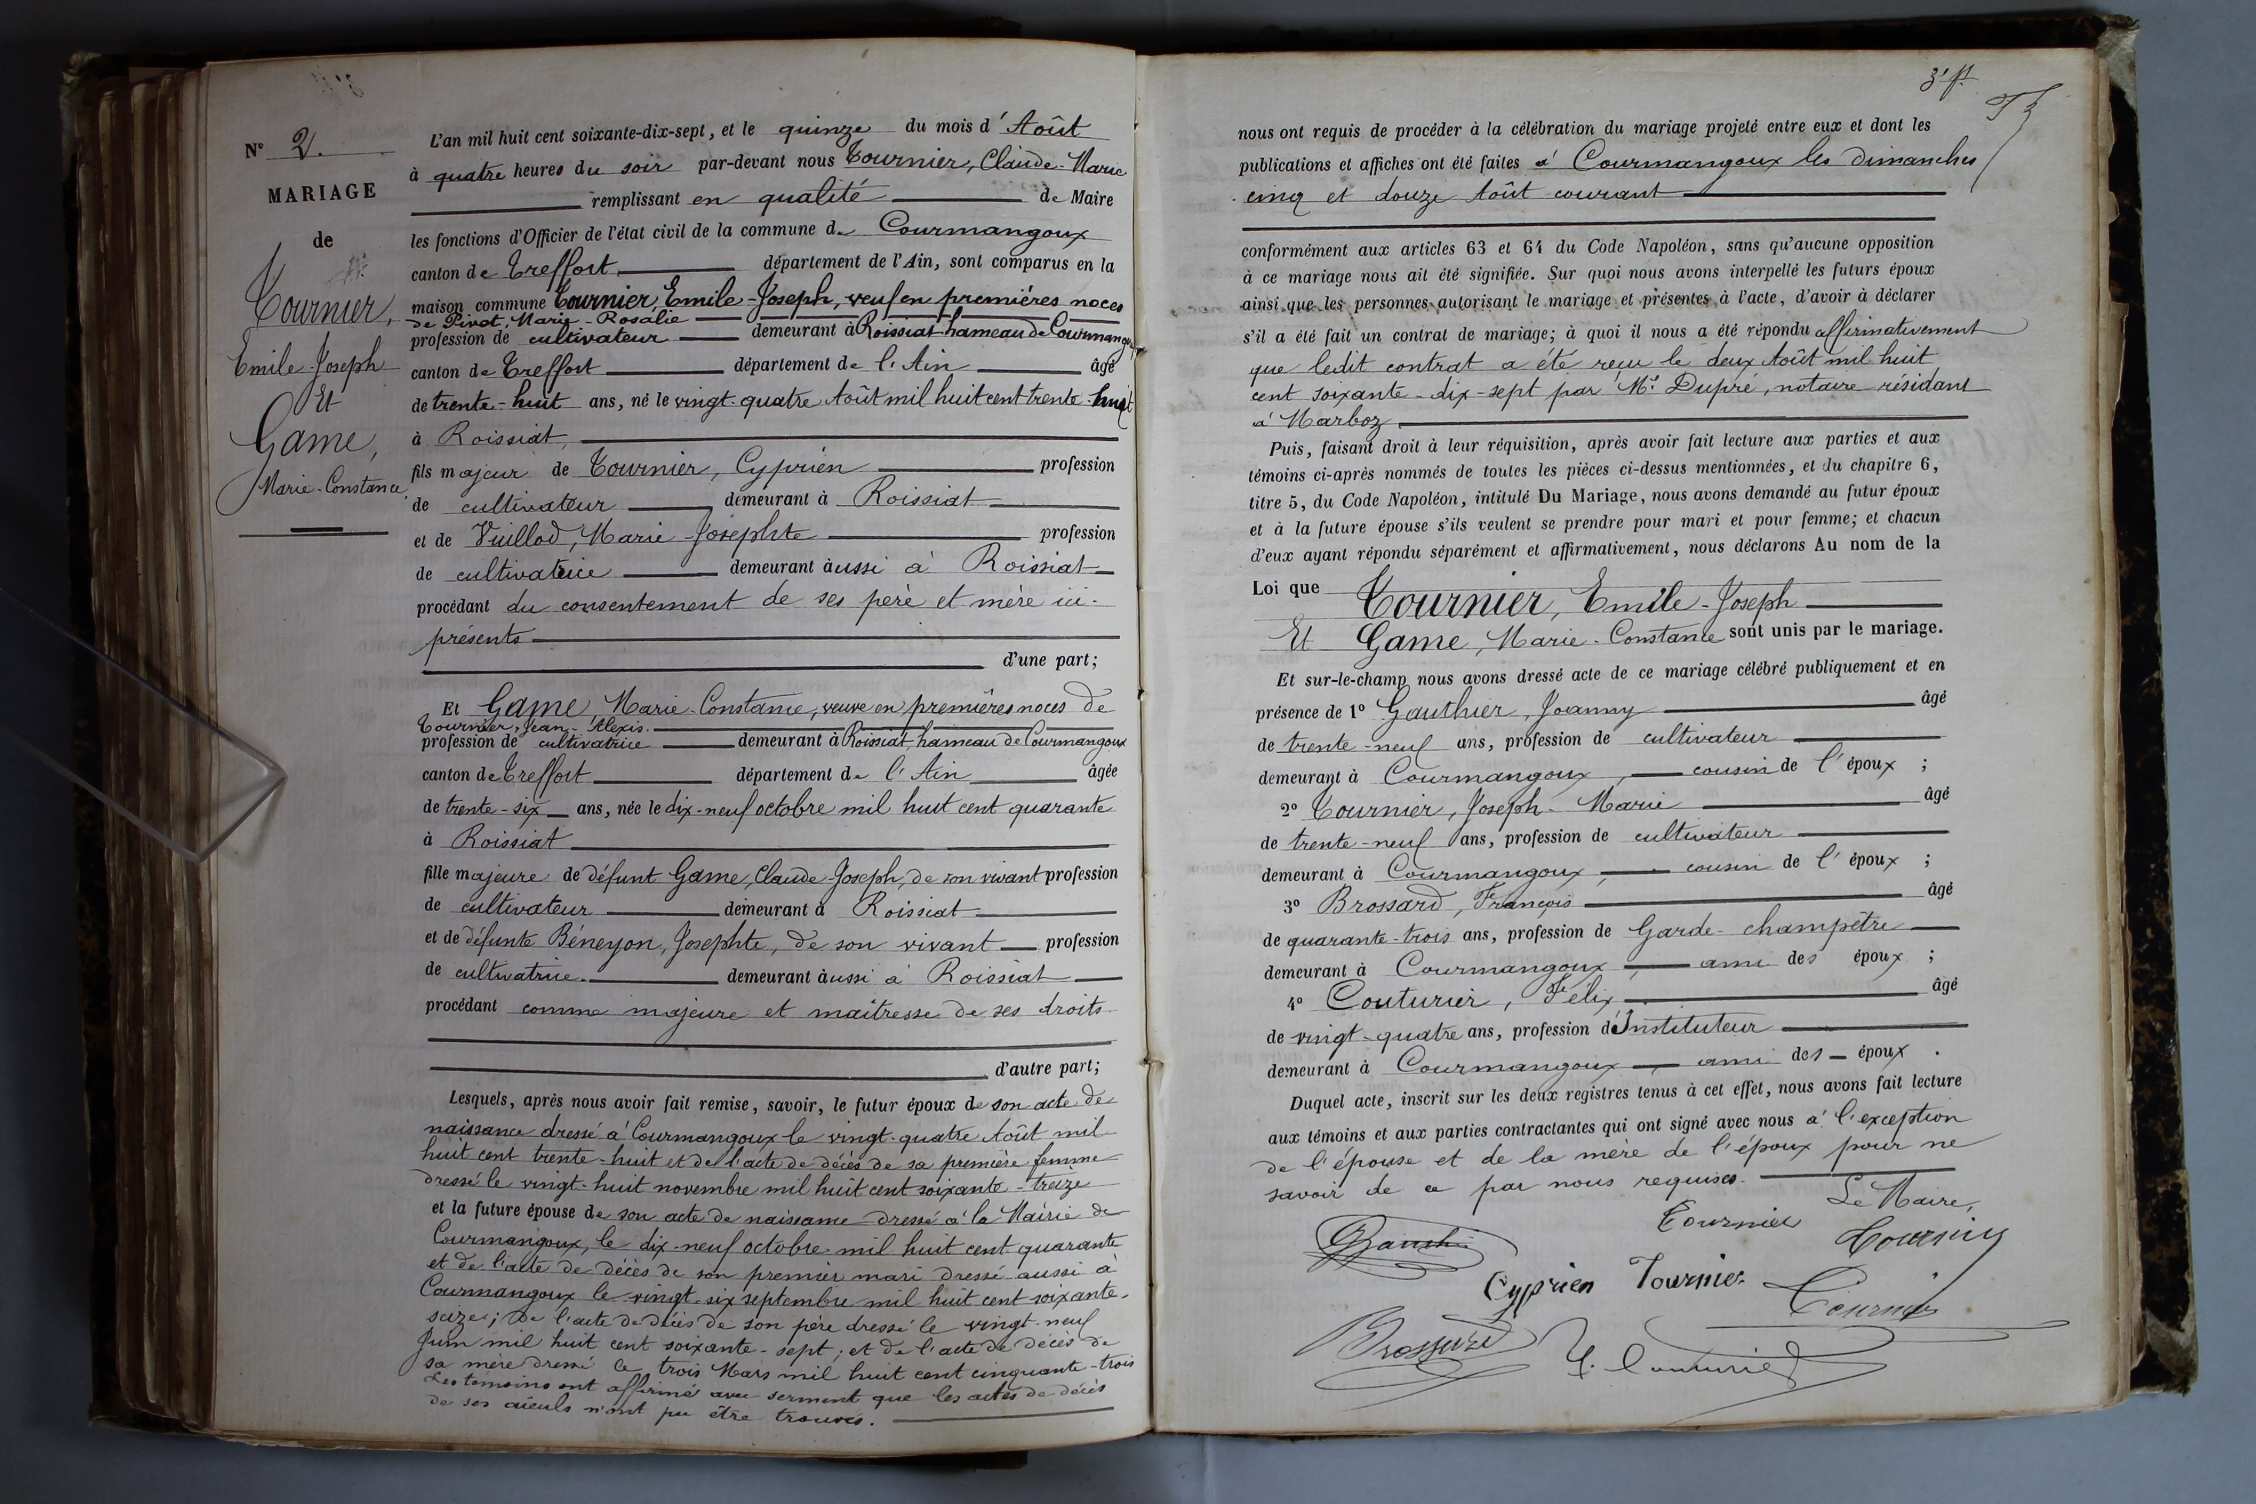 N° 2.
MARIAGE
de
Tournier,
Emile-Joseph
Et
Game,
Marie-Constance
L'an mil huit cent soixante-dix-sept, et le quinze du mois d'Août
à quatre heures du soir par-devant nous Tournier, Claude-Marie
remplissant en qualité de Maire
les fonctions d'Officier de l'état civil de la commune de Courmangoux
canton de Treffort département de l'Ain, sont comparus en la
maison commune Tournier, Emile-Joseph, veuf en premières noces
de Pivot, Marie-Rosalie
profession de cultivateur demeurant à Roissiat hameau de Courmangoux
canton de Treffort département de l'Ain âgé
de trente-huit ans, né le vingt-quatre Août mil huit cent trente-huit
à Roissiat,
fils majeur de Tournier, Cyprien profession
de cultivateur demeurant à Roissiat
et de Vuillod, Marie-Josephte profession
de cultivatrice demeurant aussi à Roissiat
procédant du consentement de ses père et mère ici-
présents
d'une part;
Et Game, Marie-Constance, veuve en premières noces de
Tournier, Jean-Alexis.
profession de cultivatrice demeurant à Roissiat, hameau de Courmangoux
canton de Treffort département de l'Ain âgée
de trente-six ans, née le dix-neuf octobre mil huit cent quarante
à Roissiat
fille majeure de défunt Game, Claude-Joseph, de son vivant profession
de cultivateur demeurant à Roissiat
et de défunte Béneyon, Josephte, de son vivant profession
de cultivatrice. demeurant aussi à Roissiat
procédant comme majeure et maîtresse de ses droits
d'autre part;
Lesquels, après nous avoir fait remise, savoir, le futur époux de son acte de
naissance dressé à Courmangoux le vingt-quatre Août mil
huit cent trente-huit et de l'acte de décès de sa première femme
dressé le vingt-huit novembre mil huit cent soixante-treize
et la future épouse de son acte de naissance dressé à la Mairie de
Courmangoux, le dix-neuf octobre mil huit cent quarante
et de l'acte de décès de son premier mari dressé aussi à
Courmangoux le vingt-six septembre mil huit cent soixante-
seize; de l'acte de décès de son père dressé le vingt-neuf
Juin mil huit cent soixante-sept; et de l'acte de décès de
sa mère dressé le trois Mars mil huit cent cinquante-trois
Les témoins ont affirmé avec serment que les actes de décès
de ses aïeuls n'ont pu être trouvés.
nous ont requis de procéder à la célébration du mariage projeté entre eux et dont les
publications et affiches ont été faites à Courmangoux les dimanches
cinq et douze Août courant
conformément aux articles 63 et 64 du Code Napoléon, sans qu'aucune opposition
à ce mariage nous ait été signifiée. Sur quoi nous avons interpellé les futurs époux
ainsi que les personnes autorisant le mariage et présentes à l'acte, d'avoir à déclarer
s'il a été fait un contrat de mariage; à quoi il nous a été répondu affirmativement
que ledit contrat a été reçu le deux Août mil huit
cent soixante-dix-sept par Me. Dupré, notaire résidant
à Marboz
Puis, faisant droit à leur réquisition, après avoir fait lecture aux parties et aux
témoins ci-après nommés de toutes les pièces ci-dessus mentionnées, et du chapitre 6,
titre 5, du Code Napoléon, intitulé Du Mariage, nous avons demandé au futur époux
et à la future épouse s'ils veulent se prendre pour mari et pour femme; et chacun
d'eux ayant répondu séparément et affirmativement, nous déclarons Au nom de la
Loi que Tournier, Emile-Joseph
Et Game, Marie-Constance sont unis par le mariage.
Et sur-le-champ nous avons dressé acte de ce mariage célébré publiquement et en
présence de 1° Gauthier, Joanny âgé
de trente-neuf ans, profession de cultivateur
demeurant à Courmangoux, cousin de l'époux;
2° Tournier, Joseph-Marie âgé
de trente-neuf ans, profession de cultivateur
demeurant à Courmangoux, cousin de l'époux;
3° Brossard, François âgé
de quarante-trois ans, profession de Garde-champêtre
demeurant à Courmangoux, ami des époux;
4° Couturier, Félix âgé
de vingt-quatre ans, profession d'Instituteur
demeurant à Courmangoux, ami des époux.
Duquel acte, inscrit sur les deux registres tenus à cet effet, nous avons fait lecture
aux témoins et aux parties contractantes qui ont signé avec nous à l'exception
de l'épouse et de la mère de l'époux pour ne
savoir de ce par nous requises.
Le Maire,
Tournier
Tournier
Cyprien Tournier
Tournier
Brossard
F. Couturier